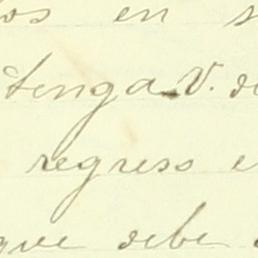 os en s
tenga V. d
regreso e
que debe